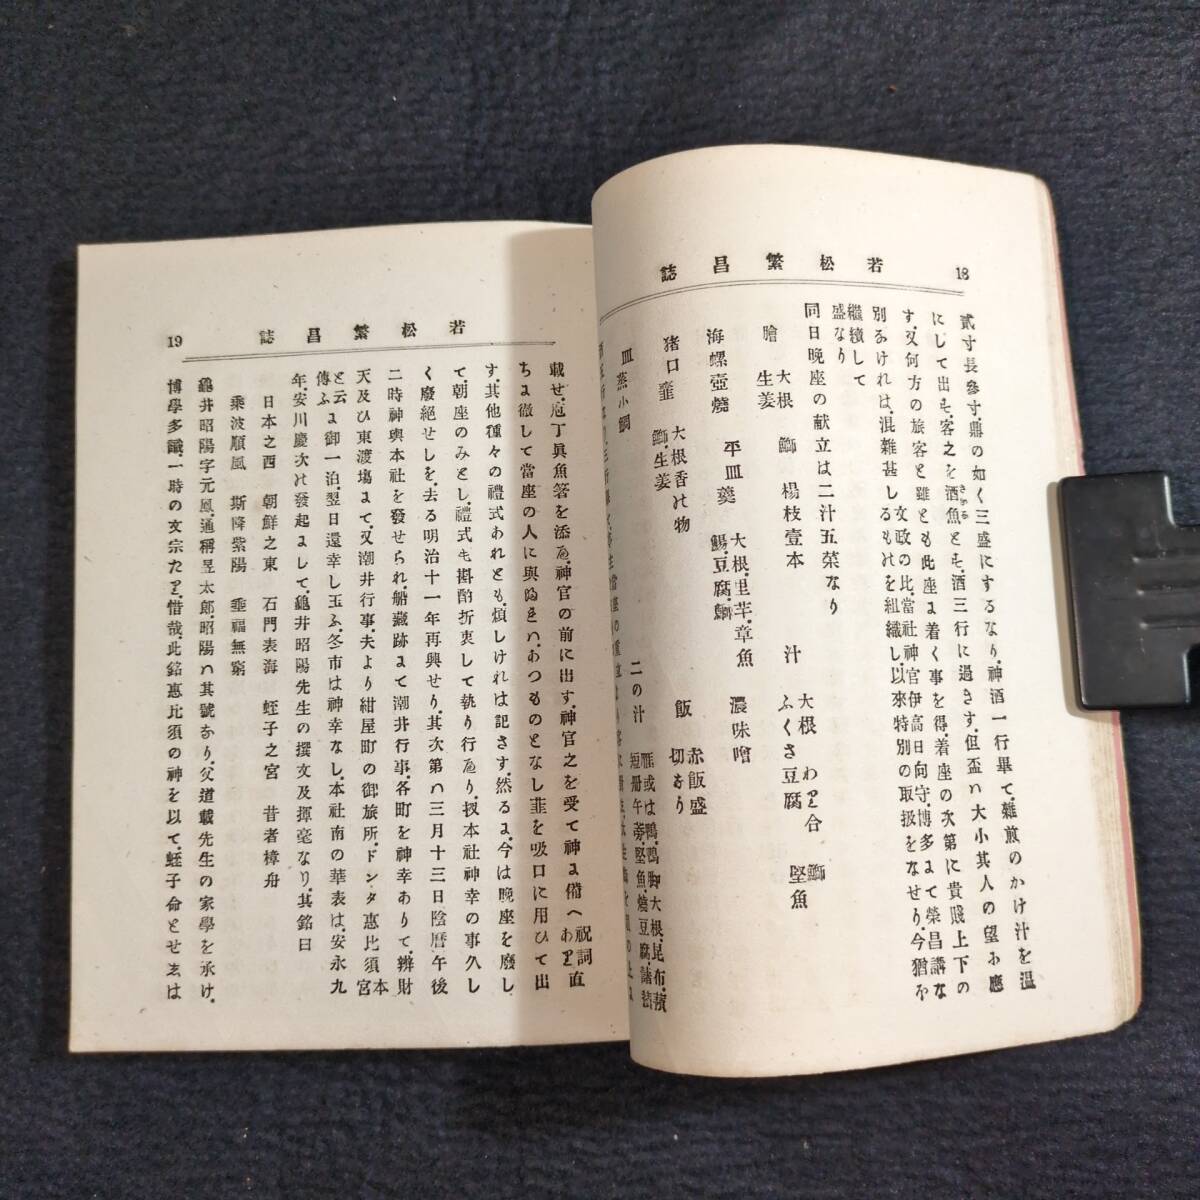 若松繁昌誌
18
貳寸長參寸、鼎の如く三盛にするなり、神酒一行畢て、雑煎のかけ汁を温
にして出す、客之を酒魚とす、酒三行に過きす、但盃ハ大小其人の望ふ應
す、又何方の旅客と雖とも此座ま着く事を得、着座の次第に貴賤上下の
別なけれは、混雜甚しきものを組織し、以來特別の取扱をなせり、今猶ほ
文政の比、當社神官伊高日向守、博多まて榮昌講な
繼續して
盛なり
同日晩座の献立は二汁五菜なり
膾 大根 生姜 鰤 楊枝壹本 汁 大根 わり合 ふくさ豆腐 鰤 堅魚
海螺壺燒 平皿羹 大根、里芋、章魚 鰑、豆腐、鰤 濃味噌
猪口韮 大根香の物 鰤、生姜 飯 赤飯盛 切なり
皿蒸小鯛 二の汁 雁或は鴨、鴨脚大根、昆布 短册午蒡、堅魚、燒豆腐
若松繁昌誌
19
載せ、庖丁眞魚箸を添ゐ、神官の前に出す、神官之を受て神ま備へ祝詞直
ちま徹して當座の人に與ぬるハ、あつものとなし韮を吸口に用ひて出
す、其他種々の禮式あれとも、煩しけれは記さす、然るま、今は晩座を廢し
て、朝座のみとし、禮式も斟酌折衷して執り行ゐり、扨本社神幸の事久し
く廢絶せしを、去る明治十一年再興せり、其次第ハ三月十三日陰暦午後
二時神輿本社を發せられ、船藏跡まて潮井行事、各町を神幸ありて、辨財
天及ひ東渡塲まて、又潮井行事、夫より紺屋町の御旅所、ドンタ惠比須宮
と云ふま御一泊、翌日還幸し玉ふ、冬市は神幸なし、本社南の華表は、安永九
年、安川慶次の發起まして、龜井昭陽先生の撰文及揮毫なり、其銘曰
日本之西 朝鮮之東 石門表海 蛭子之宮 昔者樟舟
乘波順風 斯降紫陽 垂福無窮
龜井昭陽字元鳳、通稱昱太郎、昭陽ハ其號なり、父道載先生の家學を承け、
博學多識、一時の文宗たり、惜哉、此銘惠比須の神を以て、蛭子命とせるは